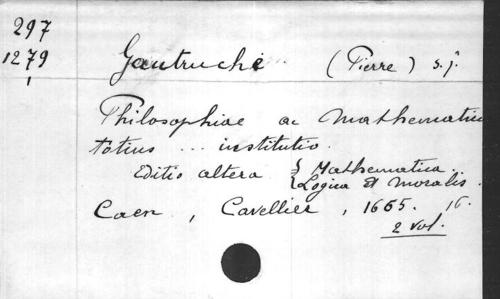 297
1279
1
Gautruche (Pierre) s.j.
Philosophiae ac Mathematicae
totius ... institutio.
Editio altera { Mathematica.
{ Logica et Moralis.
Caen, Cavellier, 1665. 16.
2 vol.